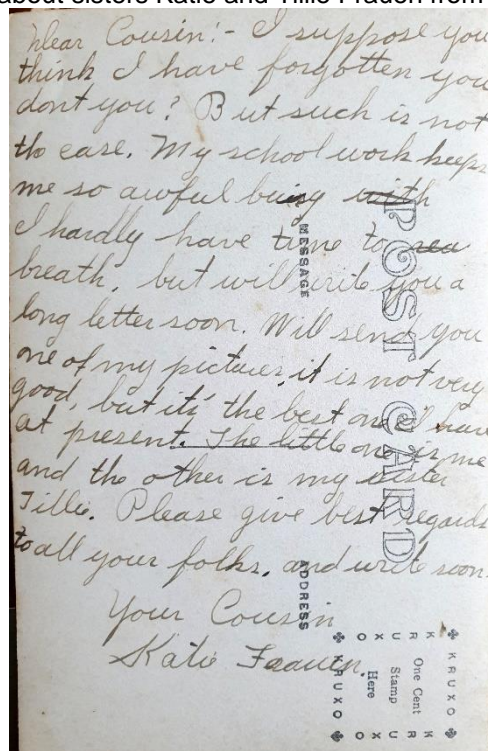 about sisters Katie and Tillie Frauen from
Dear Cousin:- I suppose you
think I have forgotten you
dont you? But such is not
the case. My school work keeps
me so awful busy with
I hardly have time to rea
breath, but will write you a
long letter soon. Will send you
one of my pictures, it is not very
good, but its' the best one I have
at present. The little one is me
and the other is my sister
Tillie. Please give best regards
to all your folks, and write soon.
Your Cousin
Katie Frauen.
POST CARD
MESSAGE
ADDRESS
KRUXO
One Cent
Stamp
Here
KRUXO
KRUXO
KRUXO